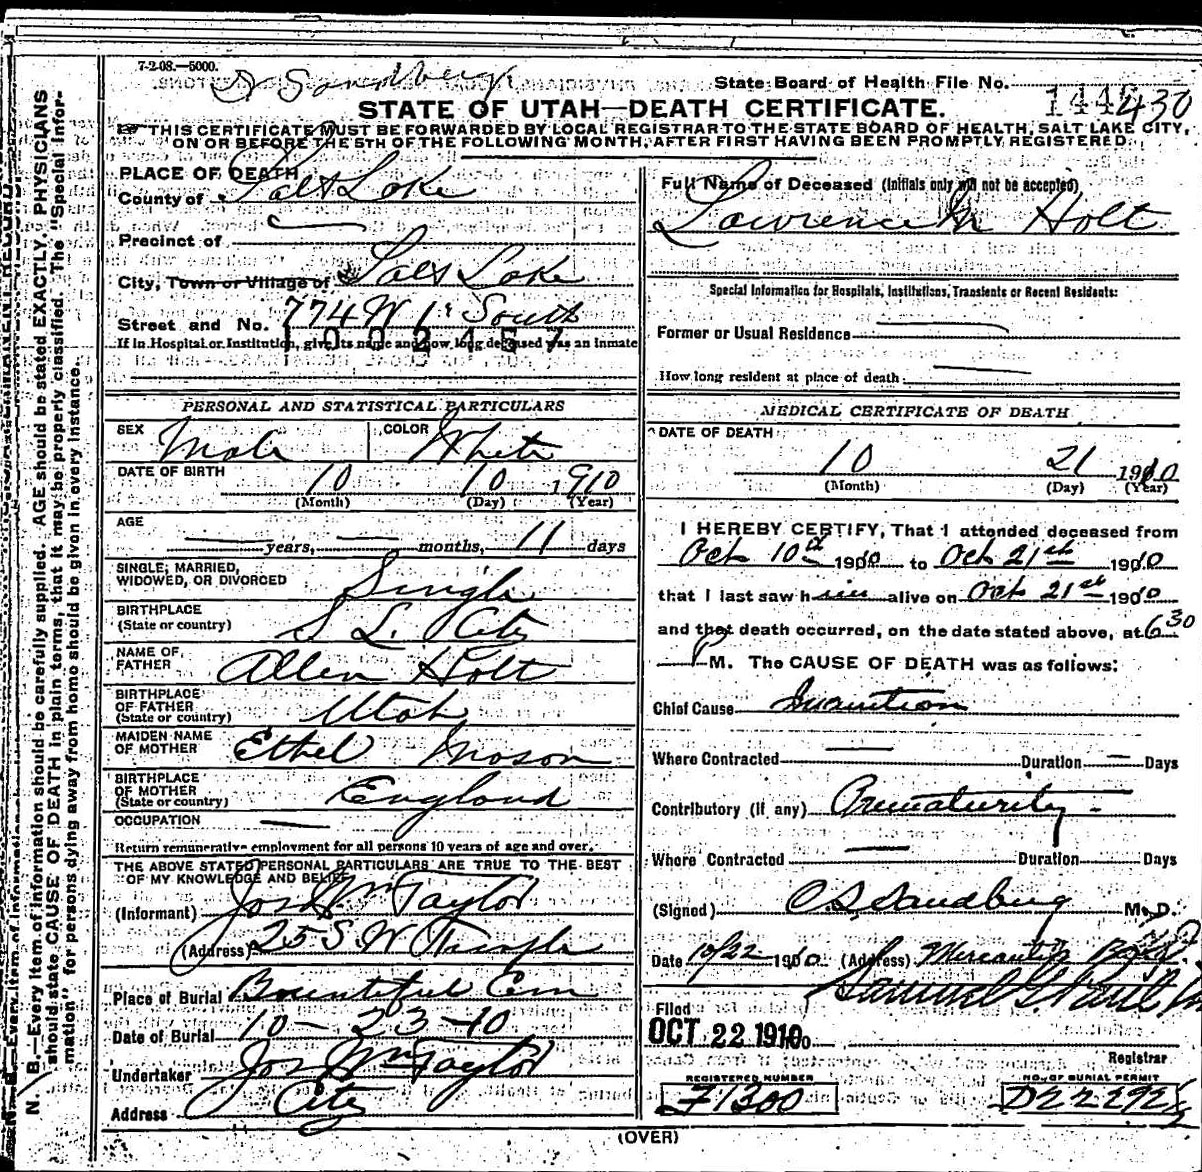 7-2-08.—5000.
Dr Sandberg
State Board of Health File No.
430
STATE OF UTAH—DEATH CERTIFICATE.
THIS CERTIFICATE MUST BE FORWARDED BY LOCAL REGISTRAR TO THE STATE BOARD OF HEALTH, SALT LAKE CITY,
ON OR BEFORE THE 5TH OF THE FOLLOWING MONTH, AFTER FIRST HAVING BEEN PROMPTLY REGISTERED.
N. B.—Every item of information should be carefully supplied. AGE should be stated EXACTLY. PHYSICIANS
should state CAUSE OF DEATH in plain terms, that it may be properly classified. The "Special Infor-
mation" for persons dying away from home should be given in every instance.
PLACE OF DEATH
County of Salt Lake
Precinct of
City, Town or Village of Salt Lake
Street and No. 774 W 1st South
If in Hospital or Institution, give its name and how long deceased was an inmate
PERSONAL AND STATISTICAL PARTICULARS
SEX Male COLOR White
DATE OF BIRTH 10 10 1910
(Month) (Day) (Year)
AGE
years, months, 11 days
SINGLE, MARRIED,
WIDOWED, OR DIVORCED Single
BIRTHPLACE
(State or country) S L. City
NAME OF
FATHER Allen Holt
BIRTHPLACE
OF FATHER
(State or country) Utah
MAIDEN NAME
OF MOTHER Ethel Mason
BIRTHPLACE
OF MOTHER
(State or country) England
OCCUPATION
Return remunerative employment for all persons 10 years of age and over.
THE ABOVE STATED PERSONAL PARTICULARS ARE TRUE TO THE BEST
OF MY KNOWLEDGE AND BELIEF
(Informant) Jos Wm Taylor
(Address) 25 S. W Temple
Place of Burial Bountiful Cem
Date of Burial 10-23-10
Undertaker Jos Wm Taylor
Address City
Full Name of Deceased (Initials only will not be accepted)
Lawrence M Holt
Special Information for Hospitals, Institutions, Transients or Recent Residents:
Former or Usual Residence
How long resident at place of death
MEDICAL CERTIFICATE OF DEATH
DATE OF DEATH
10 21 1910
(Month) (Day) (Year)
I HEREBY CERTIFY, That I attended deceased from
Oct 10th 1910 to Oct 21st 1910
that I last saw him alive on Oct 21st 1910
and that death occurred, on the date stated above, at 6 30
P M. The CAUSE OF DEATH was as follows:
Chief Cause Inanition
Where Contracted Duration Days
Contributory (if any) Prematurity
Where Contracted Duration Days
(Signed) C S Sandberg M. D.
Date 10/22 1910 (Address) Mercantile
Filed Samuel G. Paul
OCT 22 1910
Registrar
REGISTERED NUMBER NO. OF BURIAL PERMIT
F1300
(OVER)